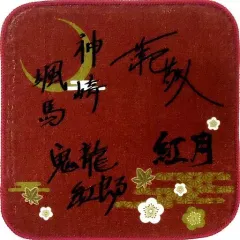 神崎
颯馬
鬼龍
紅郎
敬人
紅月